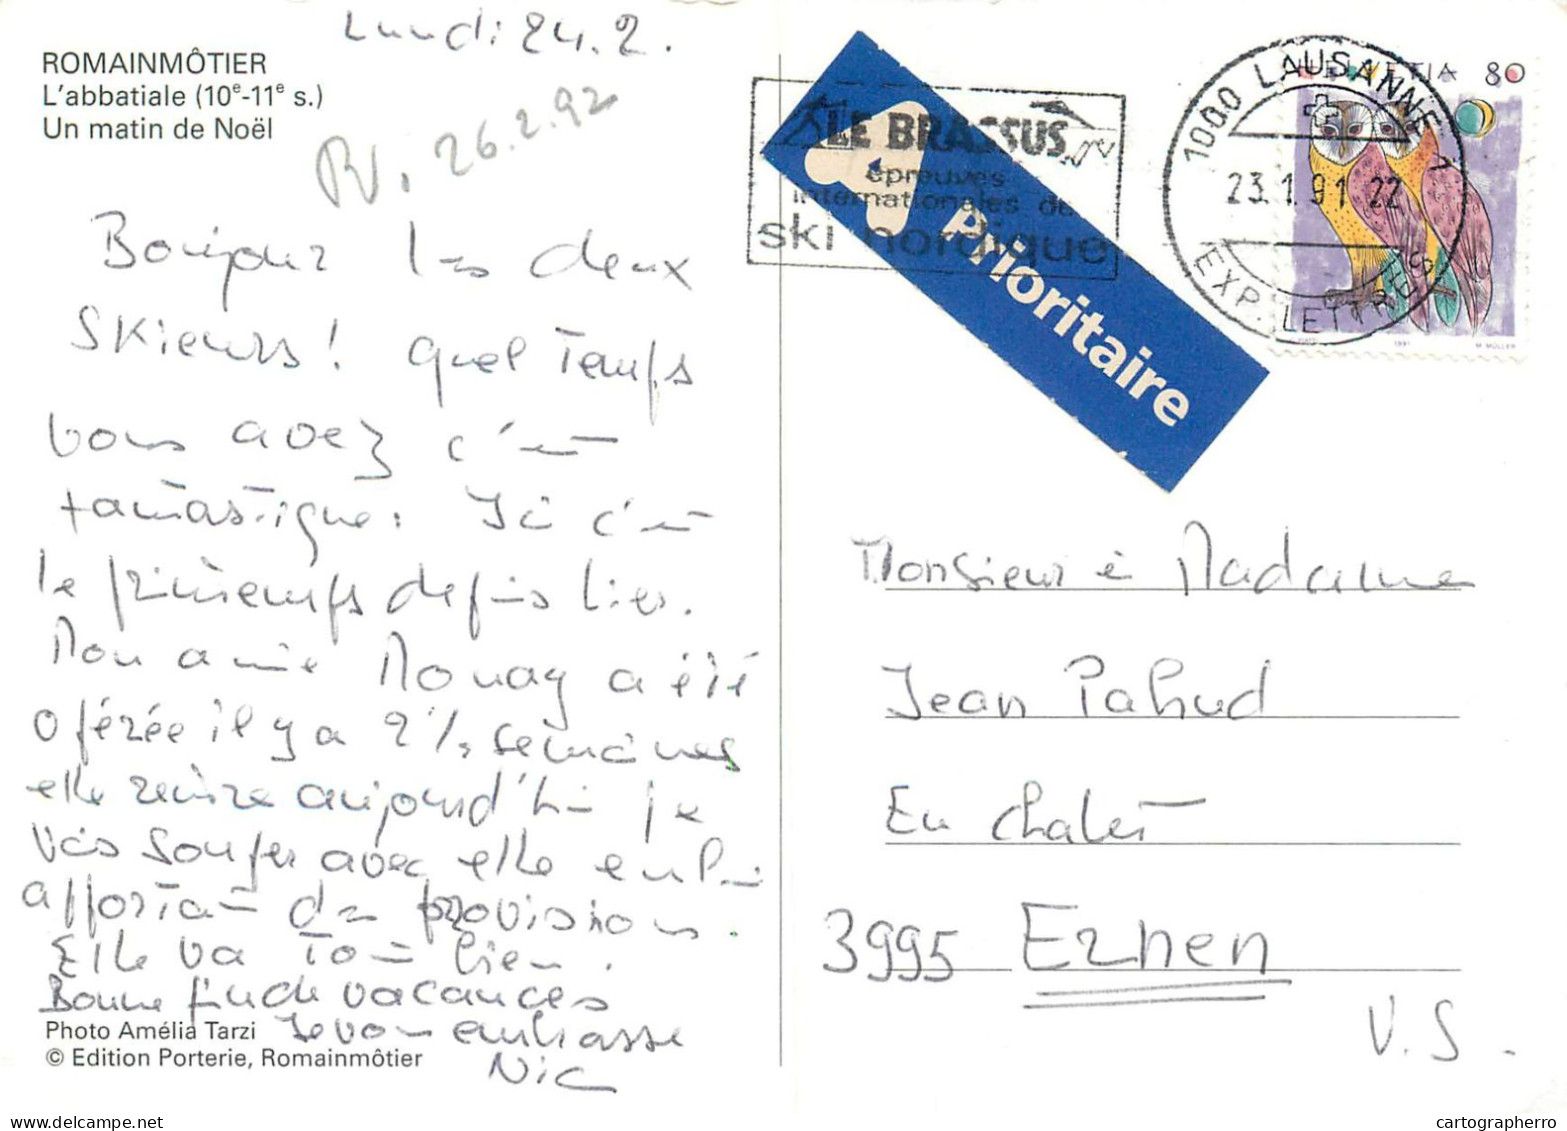 Lundi 24.2.
ROMAINMÔTIER
L'abbatiale (10e-11e s.)
Un matin de Noël
26.2.92
Bonjour les deux
skieurs! quel temps
vous avez c'est
fantastique. Ici c'est
le printemps depuis hier.
Mon amie Mouay a été
opérée il y a 2½ semaines
elle rentre aujourd'hui je
vais souper avec elle en lui
apportant des provisions.
Elle va très bien.
Bonne fin de vacances
Photo Amélia Tarzi Je vous embrasse
© Edition Porterie, Romainmôtier
Nic
LE BRASSUS
épreuves
internationales de
ski nordique
A Prioritaire
1000 LAUSANNE 1
23.1.91 22
EXP. LETTRES
HELVETIA 80
1991 M. MÜLLER
Monsieur & Madame
Jean Pahud
En chalet
3995 Ernen
V.S.
cartographerro